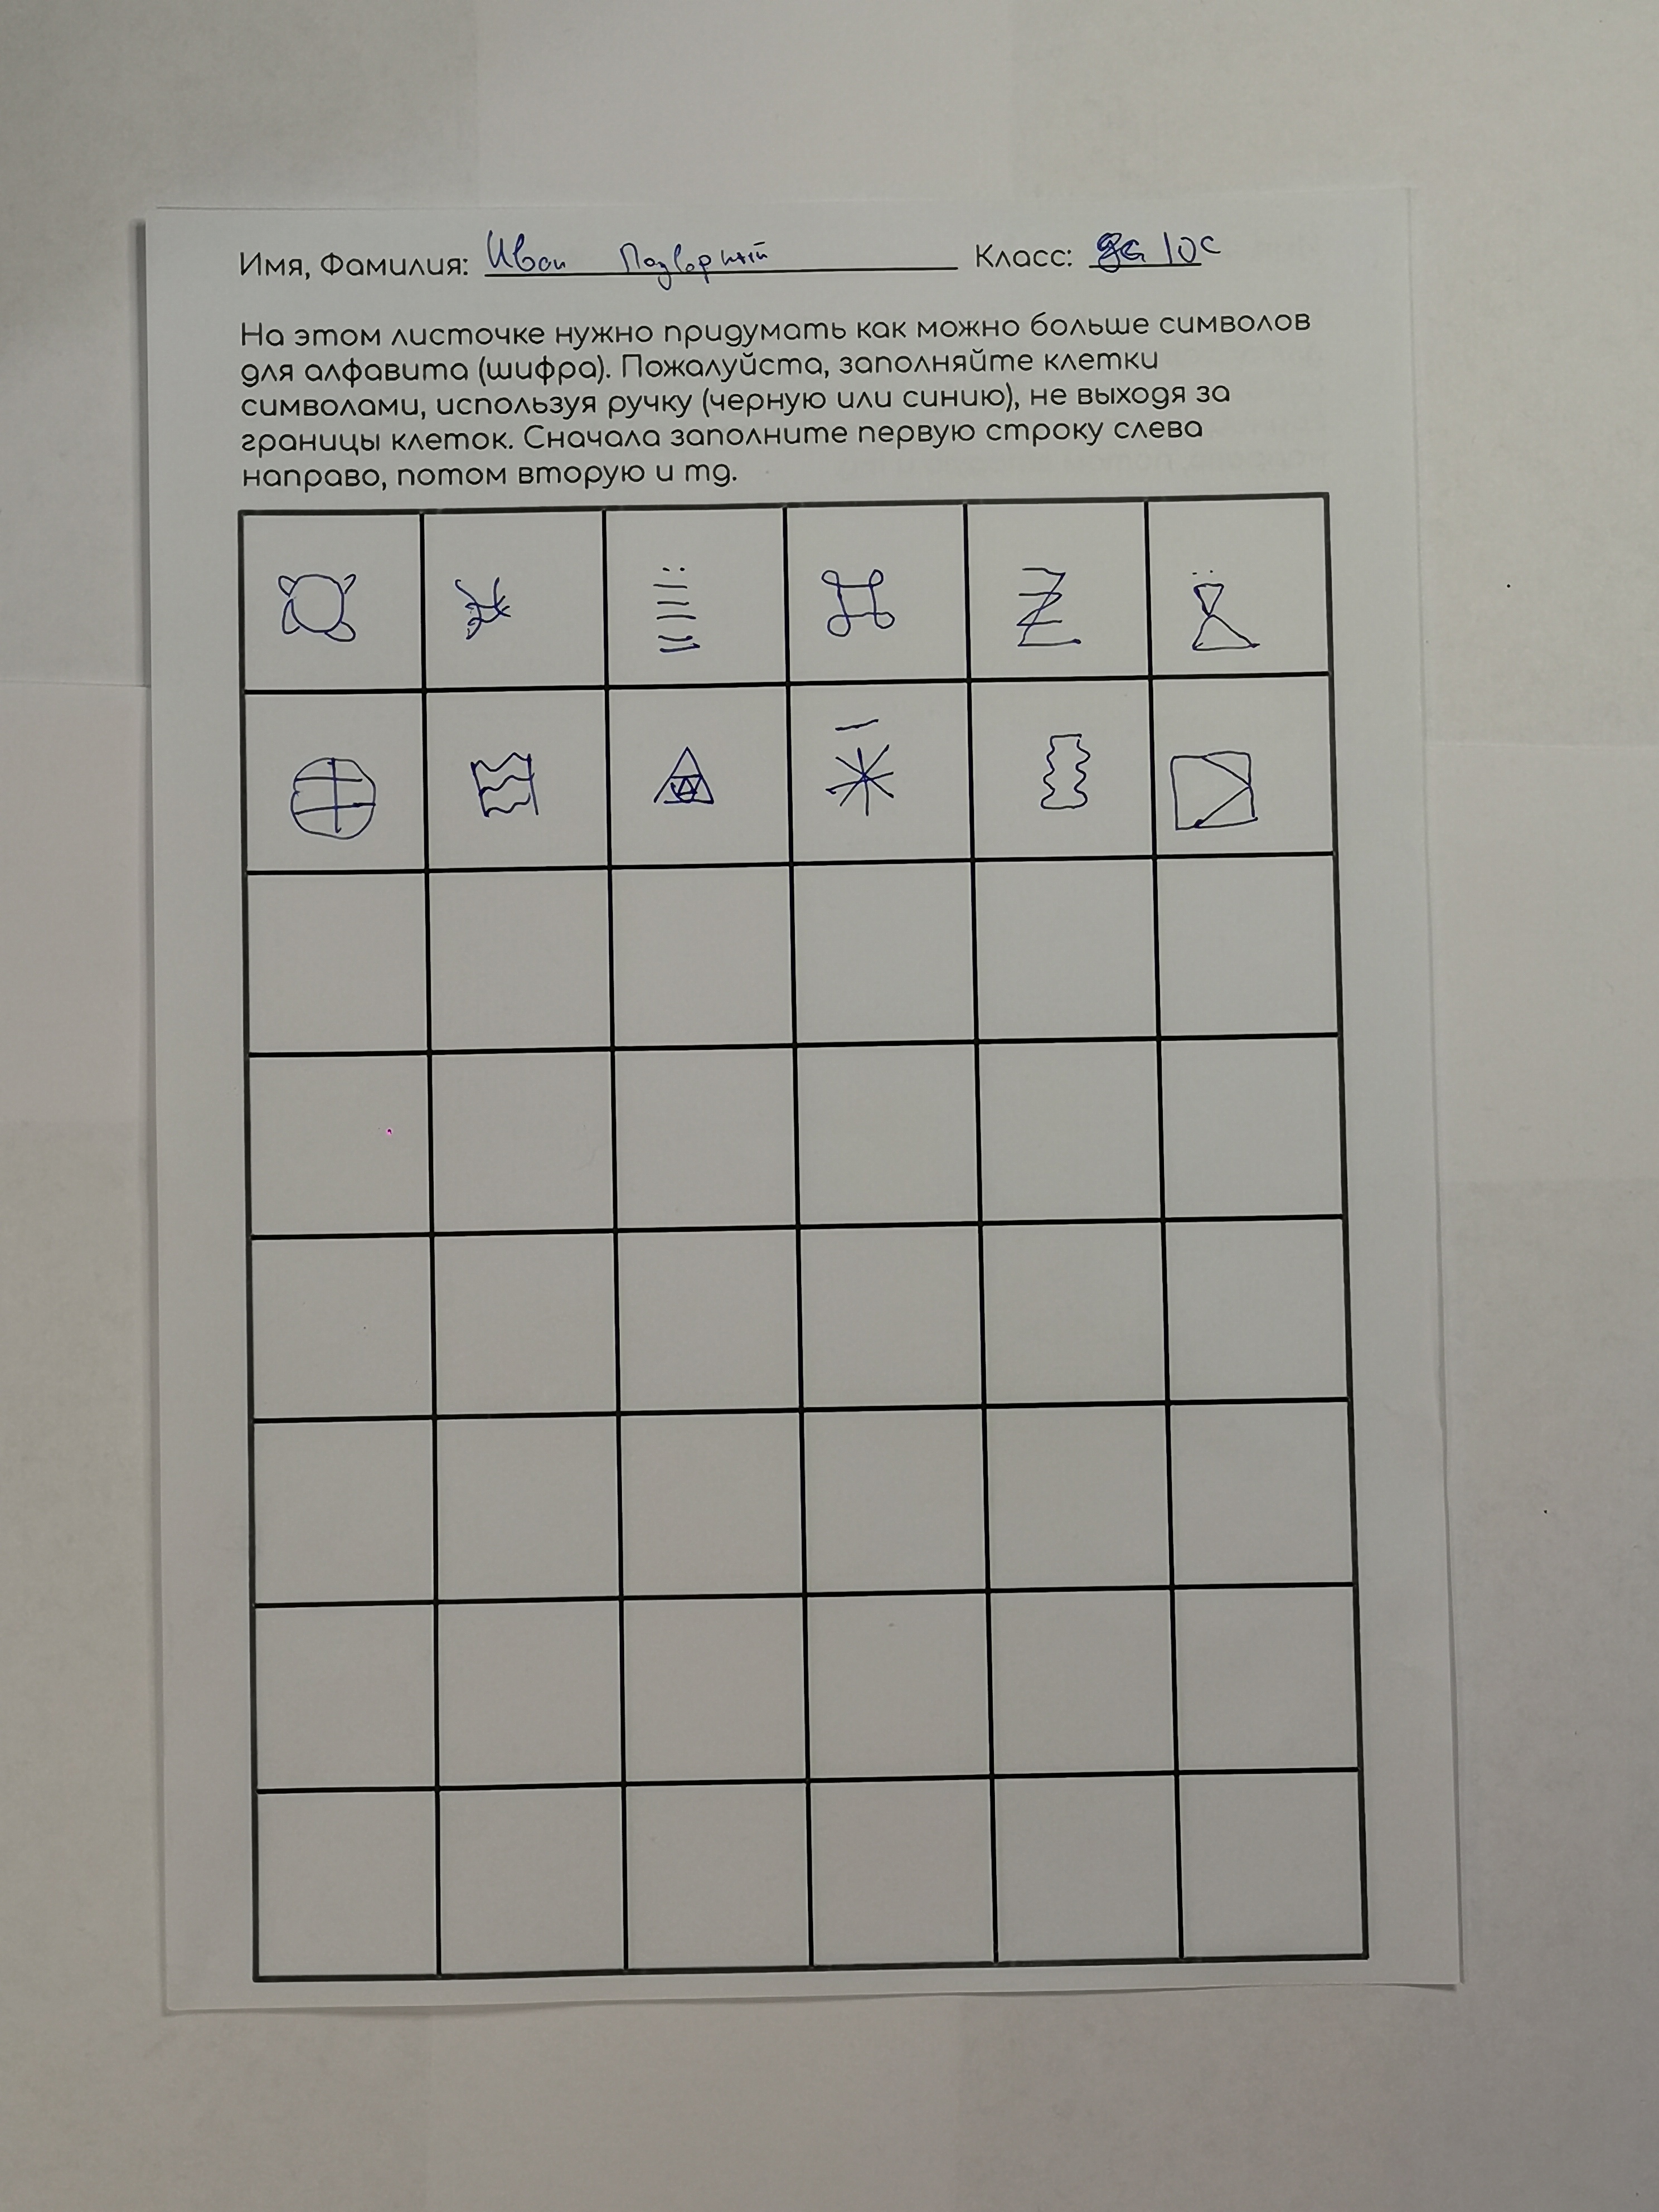 Имя, Фамилия: Иван Подворный Класс: 10с
На этом листочке нужно придумать как можно больше символов
для алфавита (шифра). Пожалуйста, заполняйте клетки
символами, используя ручку (черную или синию), не выходя за
границы клеток. Сначала заполните первую строку слева
направо, потом вторую и тд.